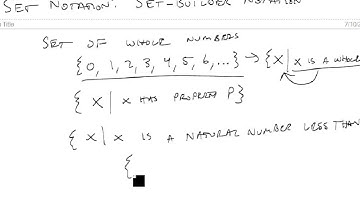 SET NOTATION: SET-BUILDER NOTATION
Title
SET OF WHOLE NUMBERS
{0, 1, 2, 3, 4, 5, 6, ...} → {X | X IS A WHOLE
{ X | X HAS PROPERTY P}
{ X | X IS A NATURAL NUMBER LESS THAN
{